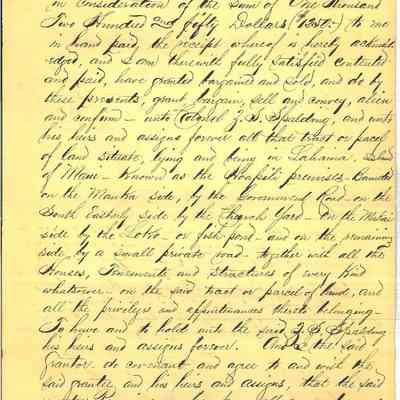 in Consideration of the Sum of One thousand
Two Hundred and fifty Dollars ($1250.-) to me
in hand paid, the receipt whereof is hereby acknowl-
edged, and I am therewith fully satisfied contented
and paid, have granted bargained and sold, and do by
these presents, grant, bargain, sell and convey, alien
and confirm - unto Colonel Z. S. Spalding, and unto
his heirs and assigns forever all that tract or parcel
of land situate, lying and being in Lahaina, Island
of Maui - known as the Hoapili premises - Bounded
on the Mauka side, by the Government Road - on the
South Easterly side by the Church Yard - On the Makai
side by the Loko - or fish pond - and on the remaining
side by a small private road - together with all the
Houses, Tenements and Structures of every Kind
whatsoever - on the said tract or parcel of land, and
all the privileges and appurtenances thereto belonging -
To have and to hold unto the said Z. S. Spalding
his heirs and assigns forever. And I the said
Grantor do covenant and agree to and with the
said grantee, and his heirs and assigns, that the said